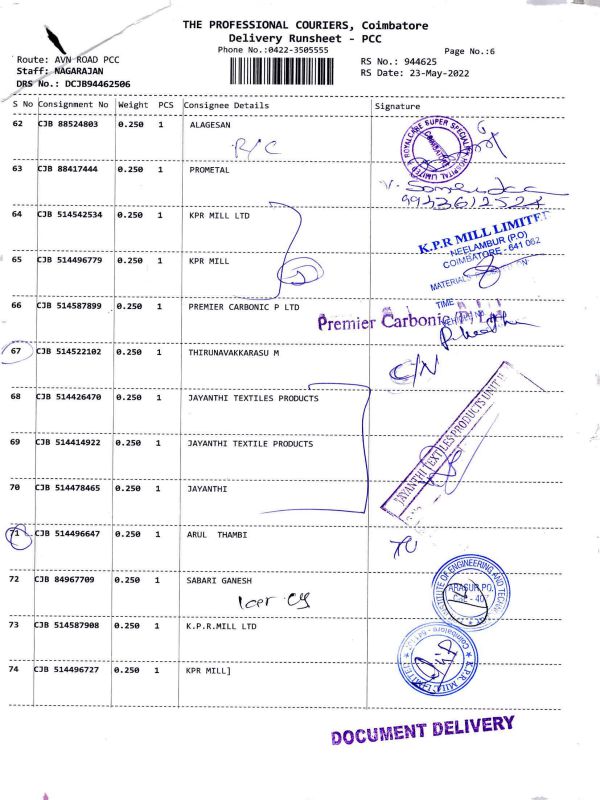 THE PROFESSIONAL COURIERS, Coimbatore
Delivery Runsheet - PCC
Phone No.:0422-3505555
Page No.:6
Route: AVN ROAD PCC
RS No.: 944625
Staff: NAGARAJAN
RS Date: 23-May-2022
DRS No.: DCJB94462506
S No Consignment No Weight PCS Consignee Details Signature
62 CJB 88524803 0.250 1 ALAGESAN
R/C
ROYALCARE SUPER SPECIALITY HOSPITAL LIMITED
63 CJB 88417444 0.250 1 PROMETAL
64 CJB 514542534 0.250 1 KPR MILL LTD
K.P.R MILL LIMITED
NEELAMBUR (P.O)
COIMBATORE - 641 062
65 CJB 514496779 0.250 1 KPR MILL
66 CJB 514587899 0.250 1 PREMIER CARBONIC P LTD
TIME
Premier Carbonic P. Ltd
67 CJB 514522102 0.250 1 THIRUNAVAKKARASU M
C/N
68 CJB 514426470 0.250 1 JAYANTHI TEXTILES PRODUCTS
69 CJB 514414922 0.250 1 JAYANTHI TEXTILE PRODUCTS
JAYANTHI TEXTILES PRODUCTS UNIT II
70 CJB 514478465 0.250 1 JAYANTHI
71 CJB 514496647 0.250 1 ARUL THAMBI
72 CJB 84967709 0.250 1 SABARI GANESH
INSTITUTE OF ENGINEERING AND
ARASUR PO.
73 CJB 514587908 0.250 1 K.P.R.MILL LTD
K.P.R. MILL LIMITED
Coimbatore
74 CJB 514496727 0.250 1 KPR MILL]
DOCUMENT DELIVERY